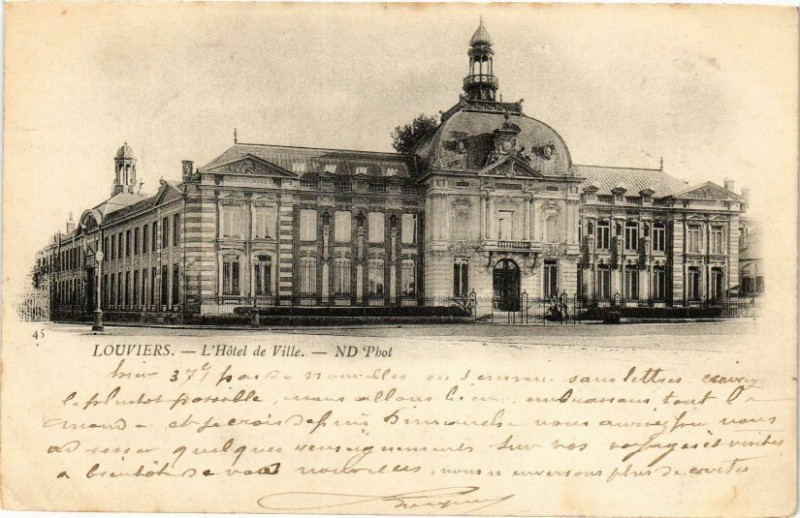 45
LOUVIERS. — L'Hôtel de Ville. — ND Phot
37e pas de nouvelles sans lettres
le plustot possible, nous allons bien, embrassons tout le
monde et je crois depuis Dimanche vous
quelques renseignements sur vos voyages et visites
a bientôt de vos nouvelles, nous n'enverrons plus de cartes